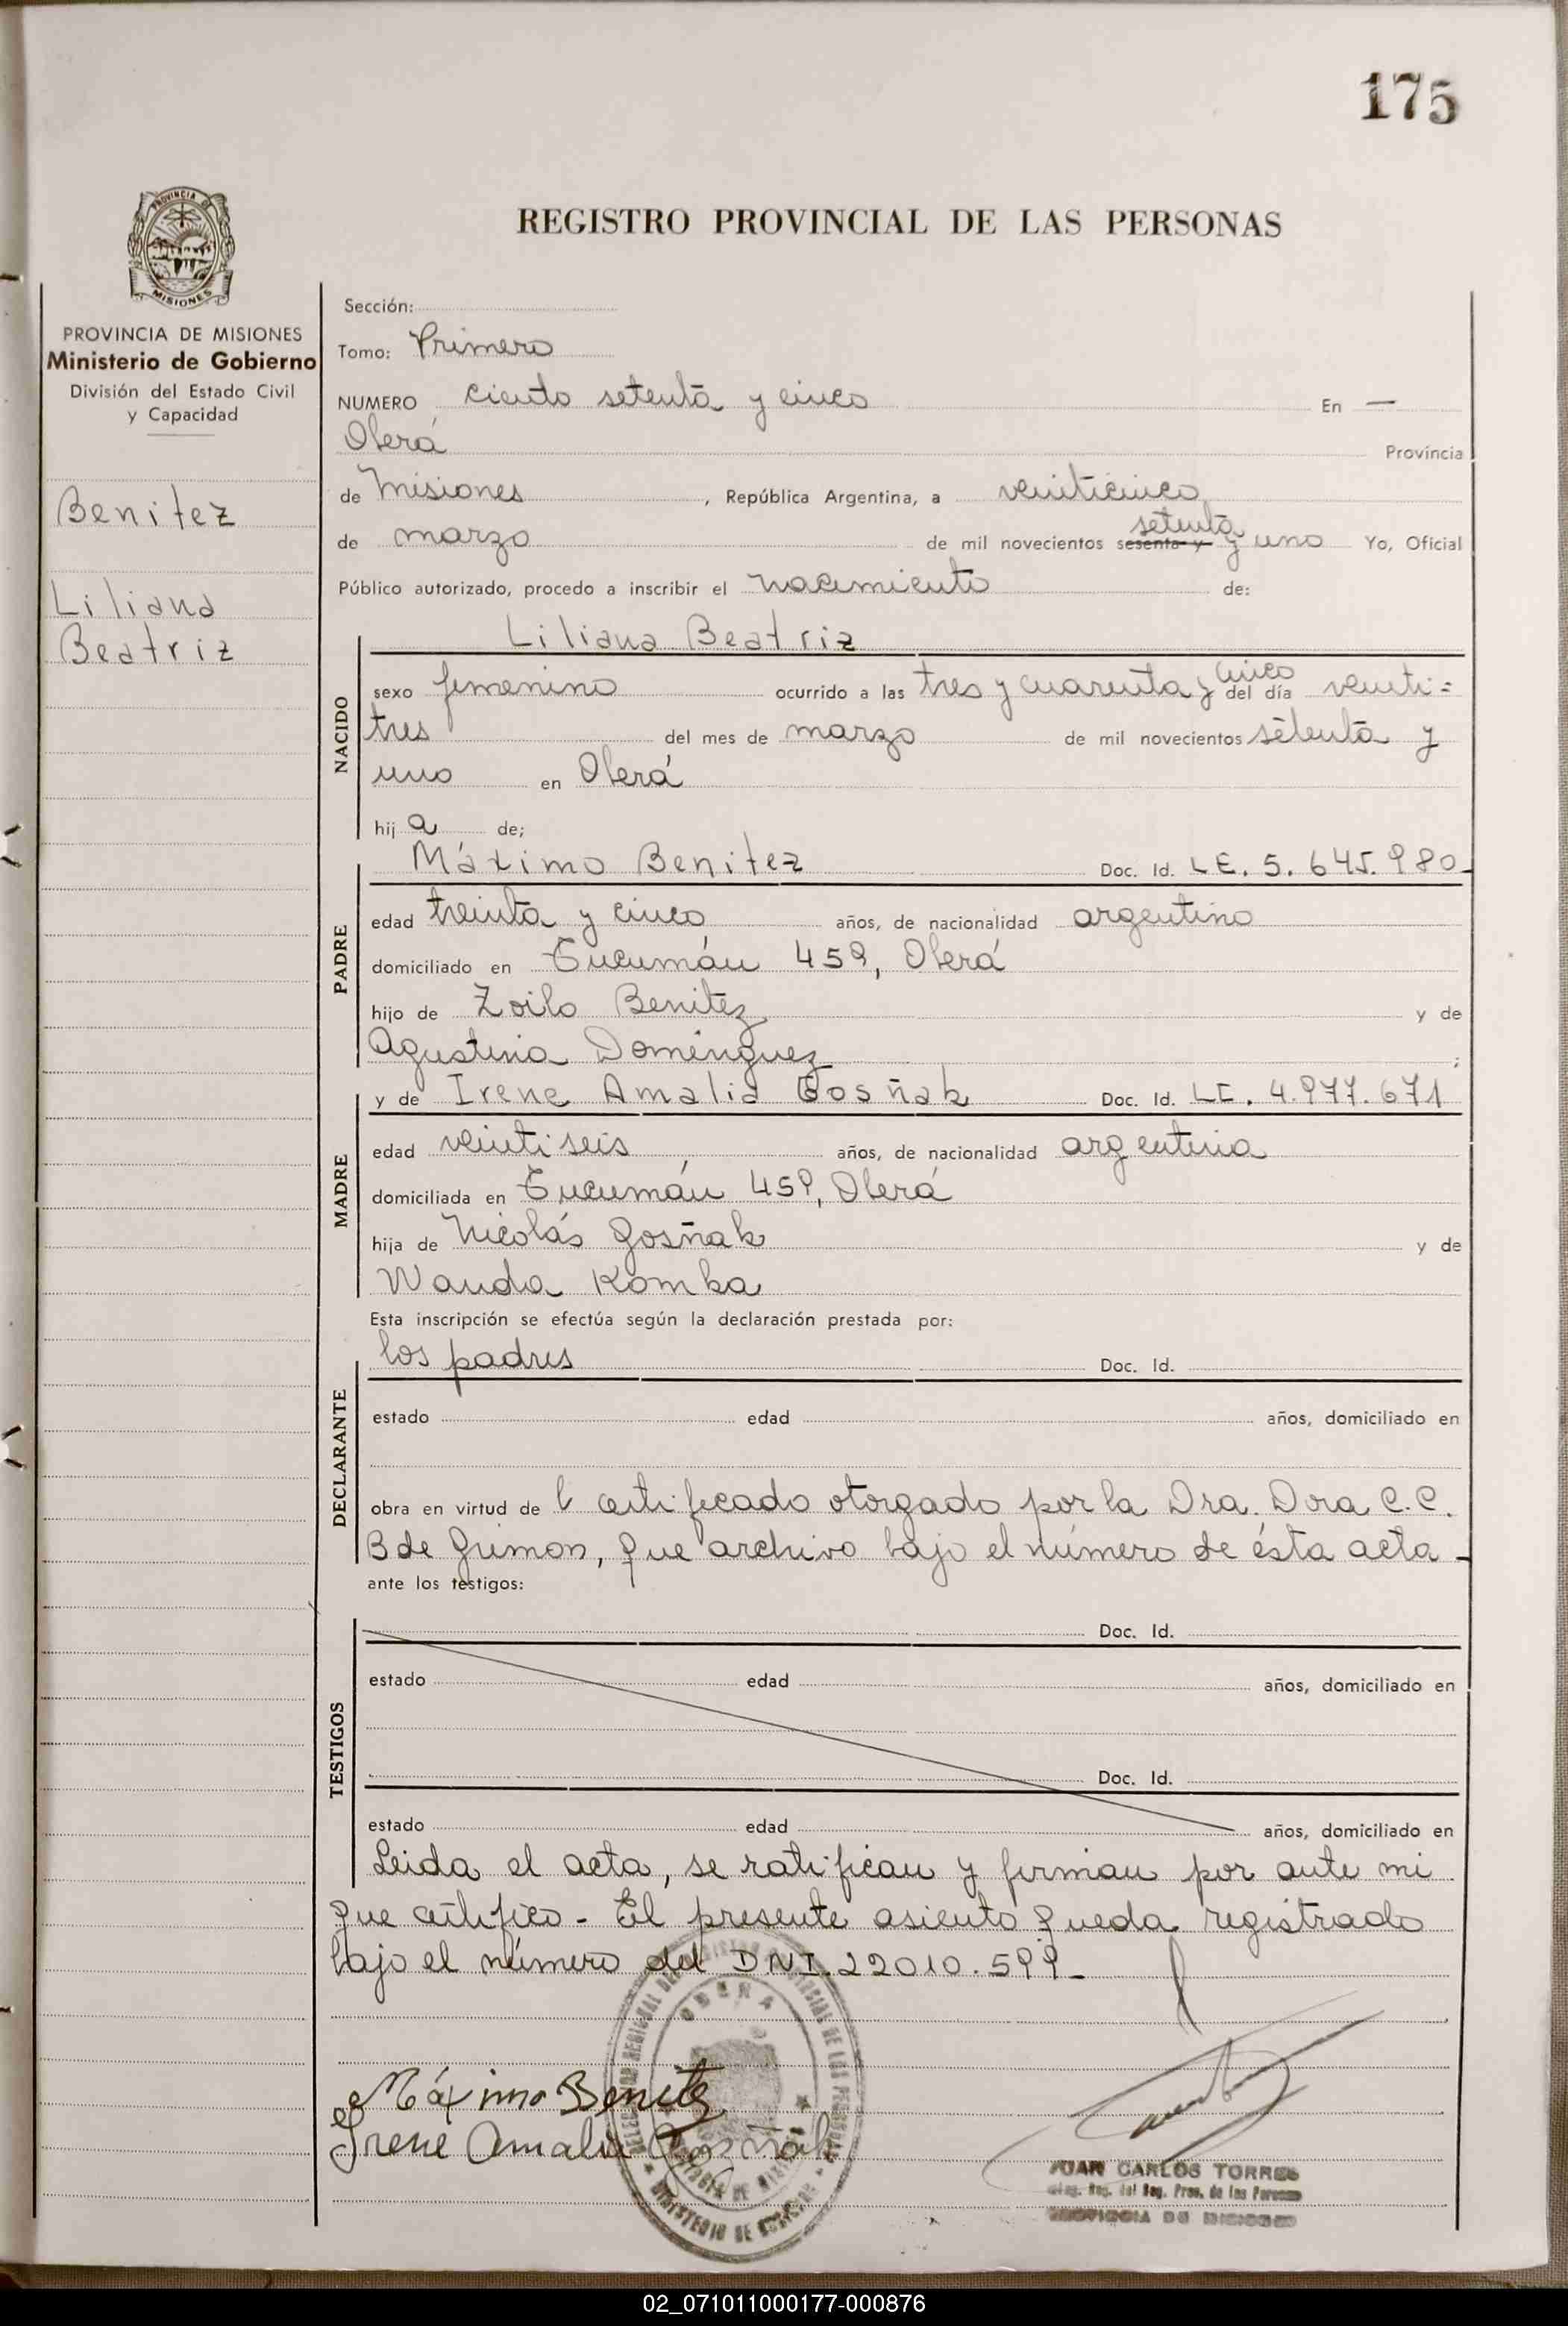 175
PROVINCIA DE
MISIONES
REGISTRO PROVINCIAL DE LAS PERSONAS
PROVINCIA DE MISIONES
Ministerio de Gobierno
División del Estado Civil
y Capacidad
Benitez
Liliana
Beatriz
Sección:
Tomo: Primero
NUMERO ciento setenta y cinco En —
Oberá Provincia
de Misiones, República Argentina, a veinticinco
setenta
de marzo de mil novecientos sesenta y y uno Yo, Oficial
Público autorizado, procedo a inscribir el nacimiento de:
Liliana Beatriz
NACIDO
cinco
sexo femenino ocurrido a las tres y cuarenta y del día veinti=
tres del mes de marzo de mil novecientos setenta y
uno en Oberá
hij a de;
Máximo Benitez Doc. Id. LE. 5.645.980
PADRE
edad treinta y cinco años, de nacionalidad argentino
domiciliado en Tucumán 459, Oberá
hijo de Zoilo Benitez y de
Agustina Domínguez ;
y de Irene Amalia Gosñak Doc. Id. LC. 4.977.671
MADRE
edad veintiseis años, de nacionalidad argentina
domiciliada en Tucumán 459, Oberá
hija de Nicolás Gosñak y de
Wanda Komka
Esta inscripción se efectúa según la declaración prestada por:
los padres Doc. Id.
DECLARANTE
estado edad años, domiciliado en
obra en virtud de l certificado otorgado por la Dra. Dora C.C.
B de Grimon, que archivo bajo el número de ésta acta -
ante los testigos:
Doc. Id.
TESTIGOS
estado edad años, domiciliado en
Doc. Id.
estado edad años, domiciliado en
Leida el acta, se ratifican y firman por ante mi
que certifico - El presente asiento queda registrado
bajo el número del DNI. 22010.599-
OBERA
MINISTERIO DE
Máximo Benitez
Irene Amalia Gosñak
JUAN CARLOS TORRES
Reg. del Reg. Prov. de las Personas
PROVINCIA DE MISIONES
02_071011000177-000876